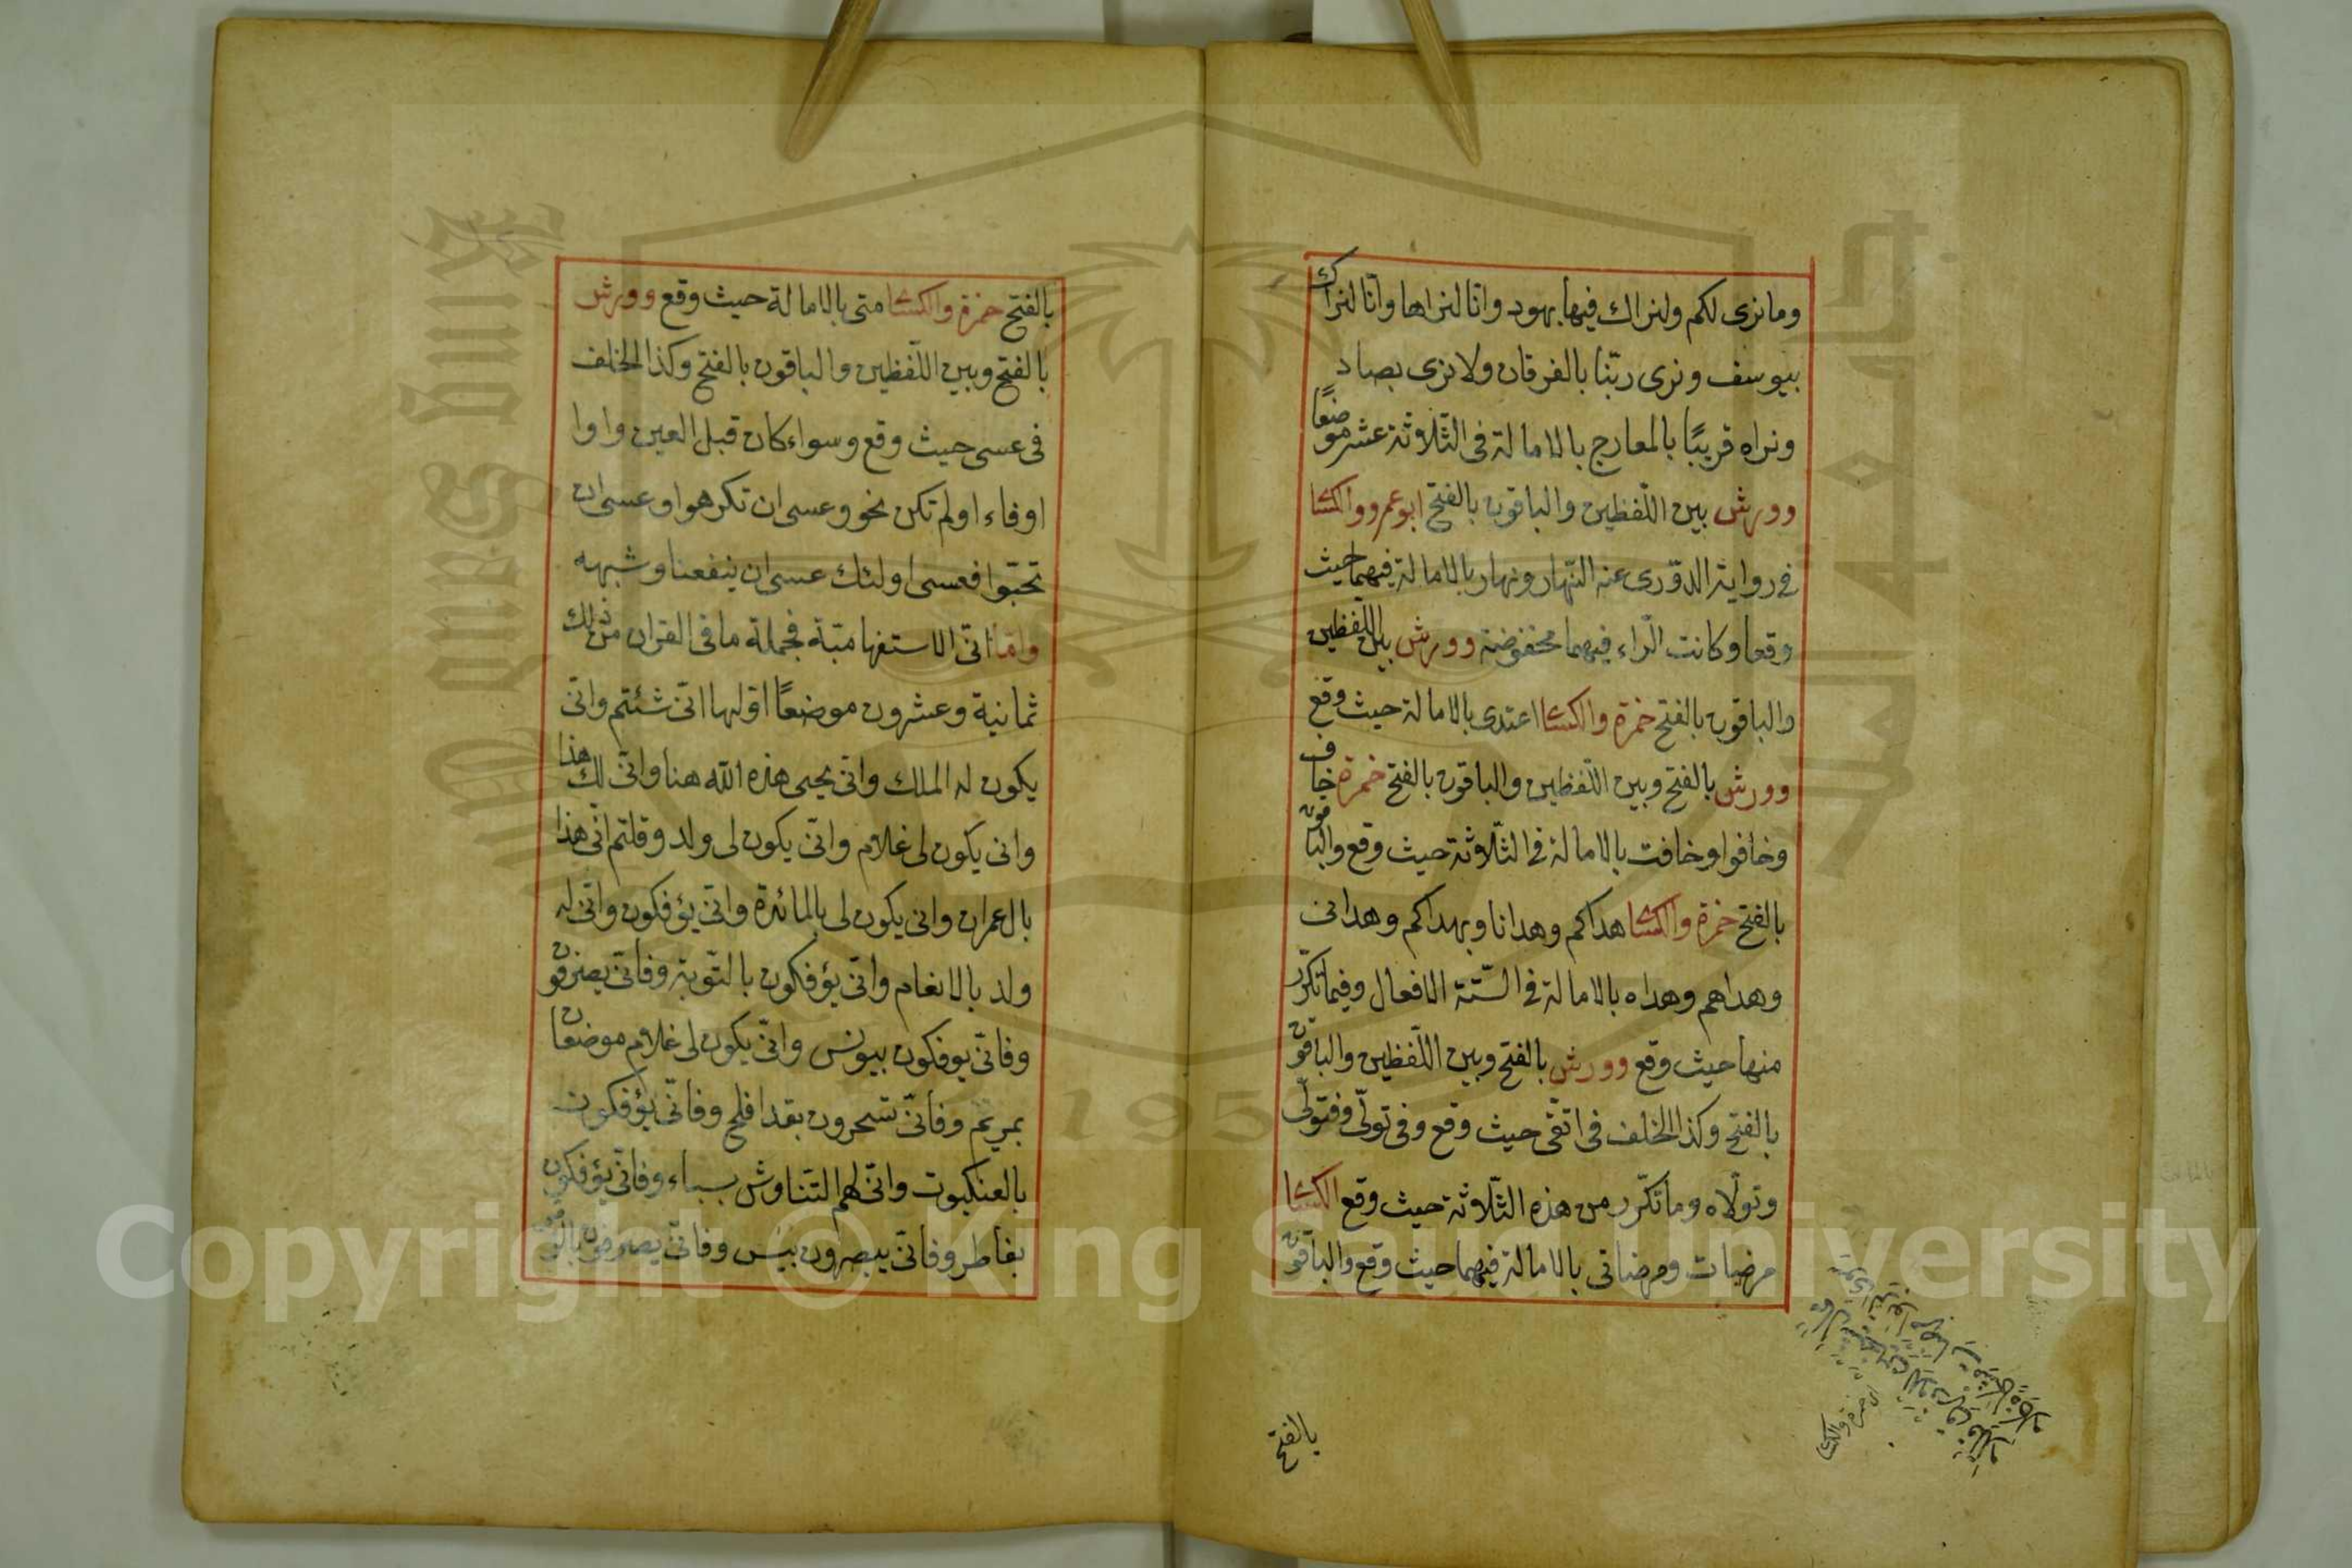 ومانرى لكم ولنراك فيها بهود وانا لنراها وانّا لنراك
بيوسف ونرى ربّنا بالفرقان ولا نرى بصاد
ونراه قريبًا بالمعارج بالامالة فى الثلاثة عشر موضعًا
وورش بين اللّفظين والباقون بالفتح ابو عمرو والكسا
فى رواية الدّورى عنه النّهار ونهار بالامالة فيهما حيث
وقعا وكانت الّراء فيهما مخفوضة وورش بين اللّفظين
والباقون بالفتح حمزة والكسا اعتدى بالامالة حيث وقع
وورش بالفتح وبين اللّفظين والباقون بالفتح حمزة خاف
وخافوا وخافت بالامالة فى الثّلاثة حيث وقع والباقون
بالفتح حمزة والكسا هداكم وهدانا وبهداكم وهدانى
وهداهم وهداه بالامالة فى السّتة الافعال وفيما تكرّر
منها حيث وقع وورش بالفتح وبين اللّفظين والباقون
بالفتح وكذا الخلف فى اتقّى حيث وقع وفى تولّى وفتولّى
وتولّاه وما تكّرر من هذه الثّلاثة حيث وقع الكسا
مرضات ومرضاتى بالامالة فيهما حيث وقع والباقون
بالفتح
بالفتح حمزة والكسا متى بالامالة حيث وقع وورش
بالفتح وبين اللّفظين والباقون بالفتح وكذا الخلف
فى عسى حيث وقع وسواء كان قبل العين واوا
اوفاء اولم تكن نحو وعسى ان تكرهوا وعسى ان
تحبّوا فعسى اولئك عسى ان ينفعنا وشبهه
وامّا انّى الاستفهاميّة فجملة ما فى القران من ذلك
ثمانية وعشرون موضعًا اوّلها انّى شئتم وانّى
يكون له الملك وانّى يحيى هذه الله هنا وانّى لك هذا
وانى يكون لى غلام وانّى يكون لى ولد وقلتم انّى هذا
بال عمران وانى يكون لى بالمائدة وانّى يؤفكون وانّى له
ولد بالانعام وانّى يؤفكون بالتّوبة وفانّى يصرفون
وفانّى يوفكون بيونس وانّى يكون لى غلام موضعان
بمريم وفانّى تسحرون بقد افلح وفانّى يؤفكون
بالعنكبوت وانّى لهم التناوش بسباء وفانّى يؤفكون
بفاطر وفانّى يبصرون بيس وفانّى يصرفون
حمزة والكسا
Copyright © King Saud University
195